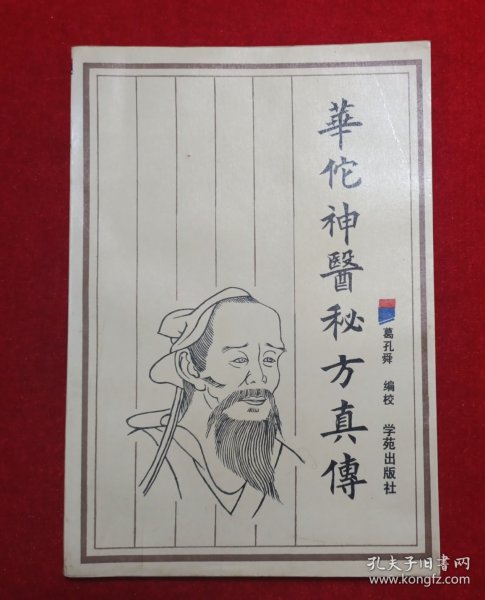 華佗神醫秘方真傳
葛孔舜 编校 学苑出版社
孔夫子旧書网
www.kongfz.com